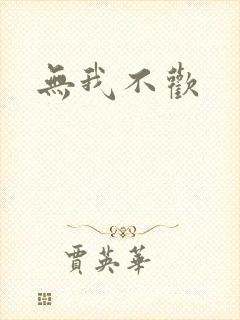 無我不歡
賈英華